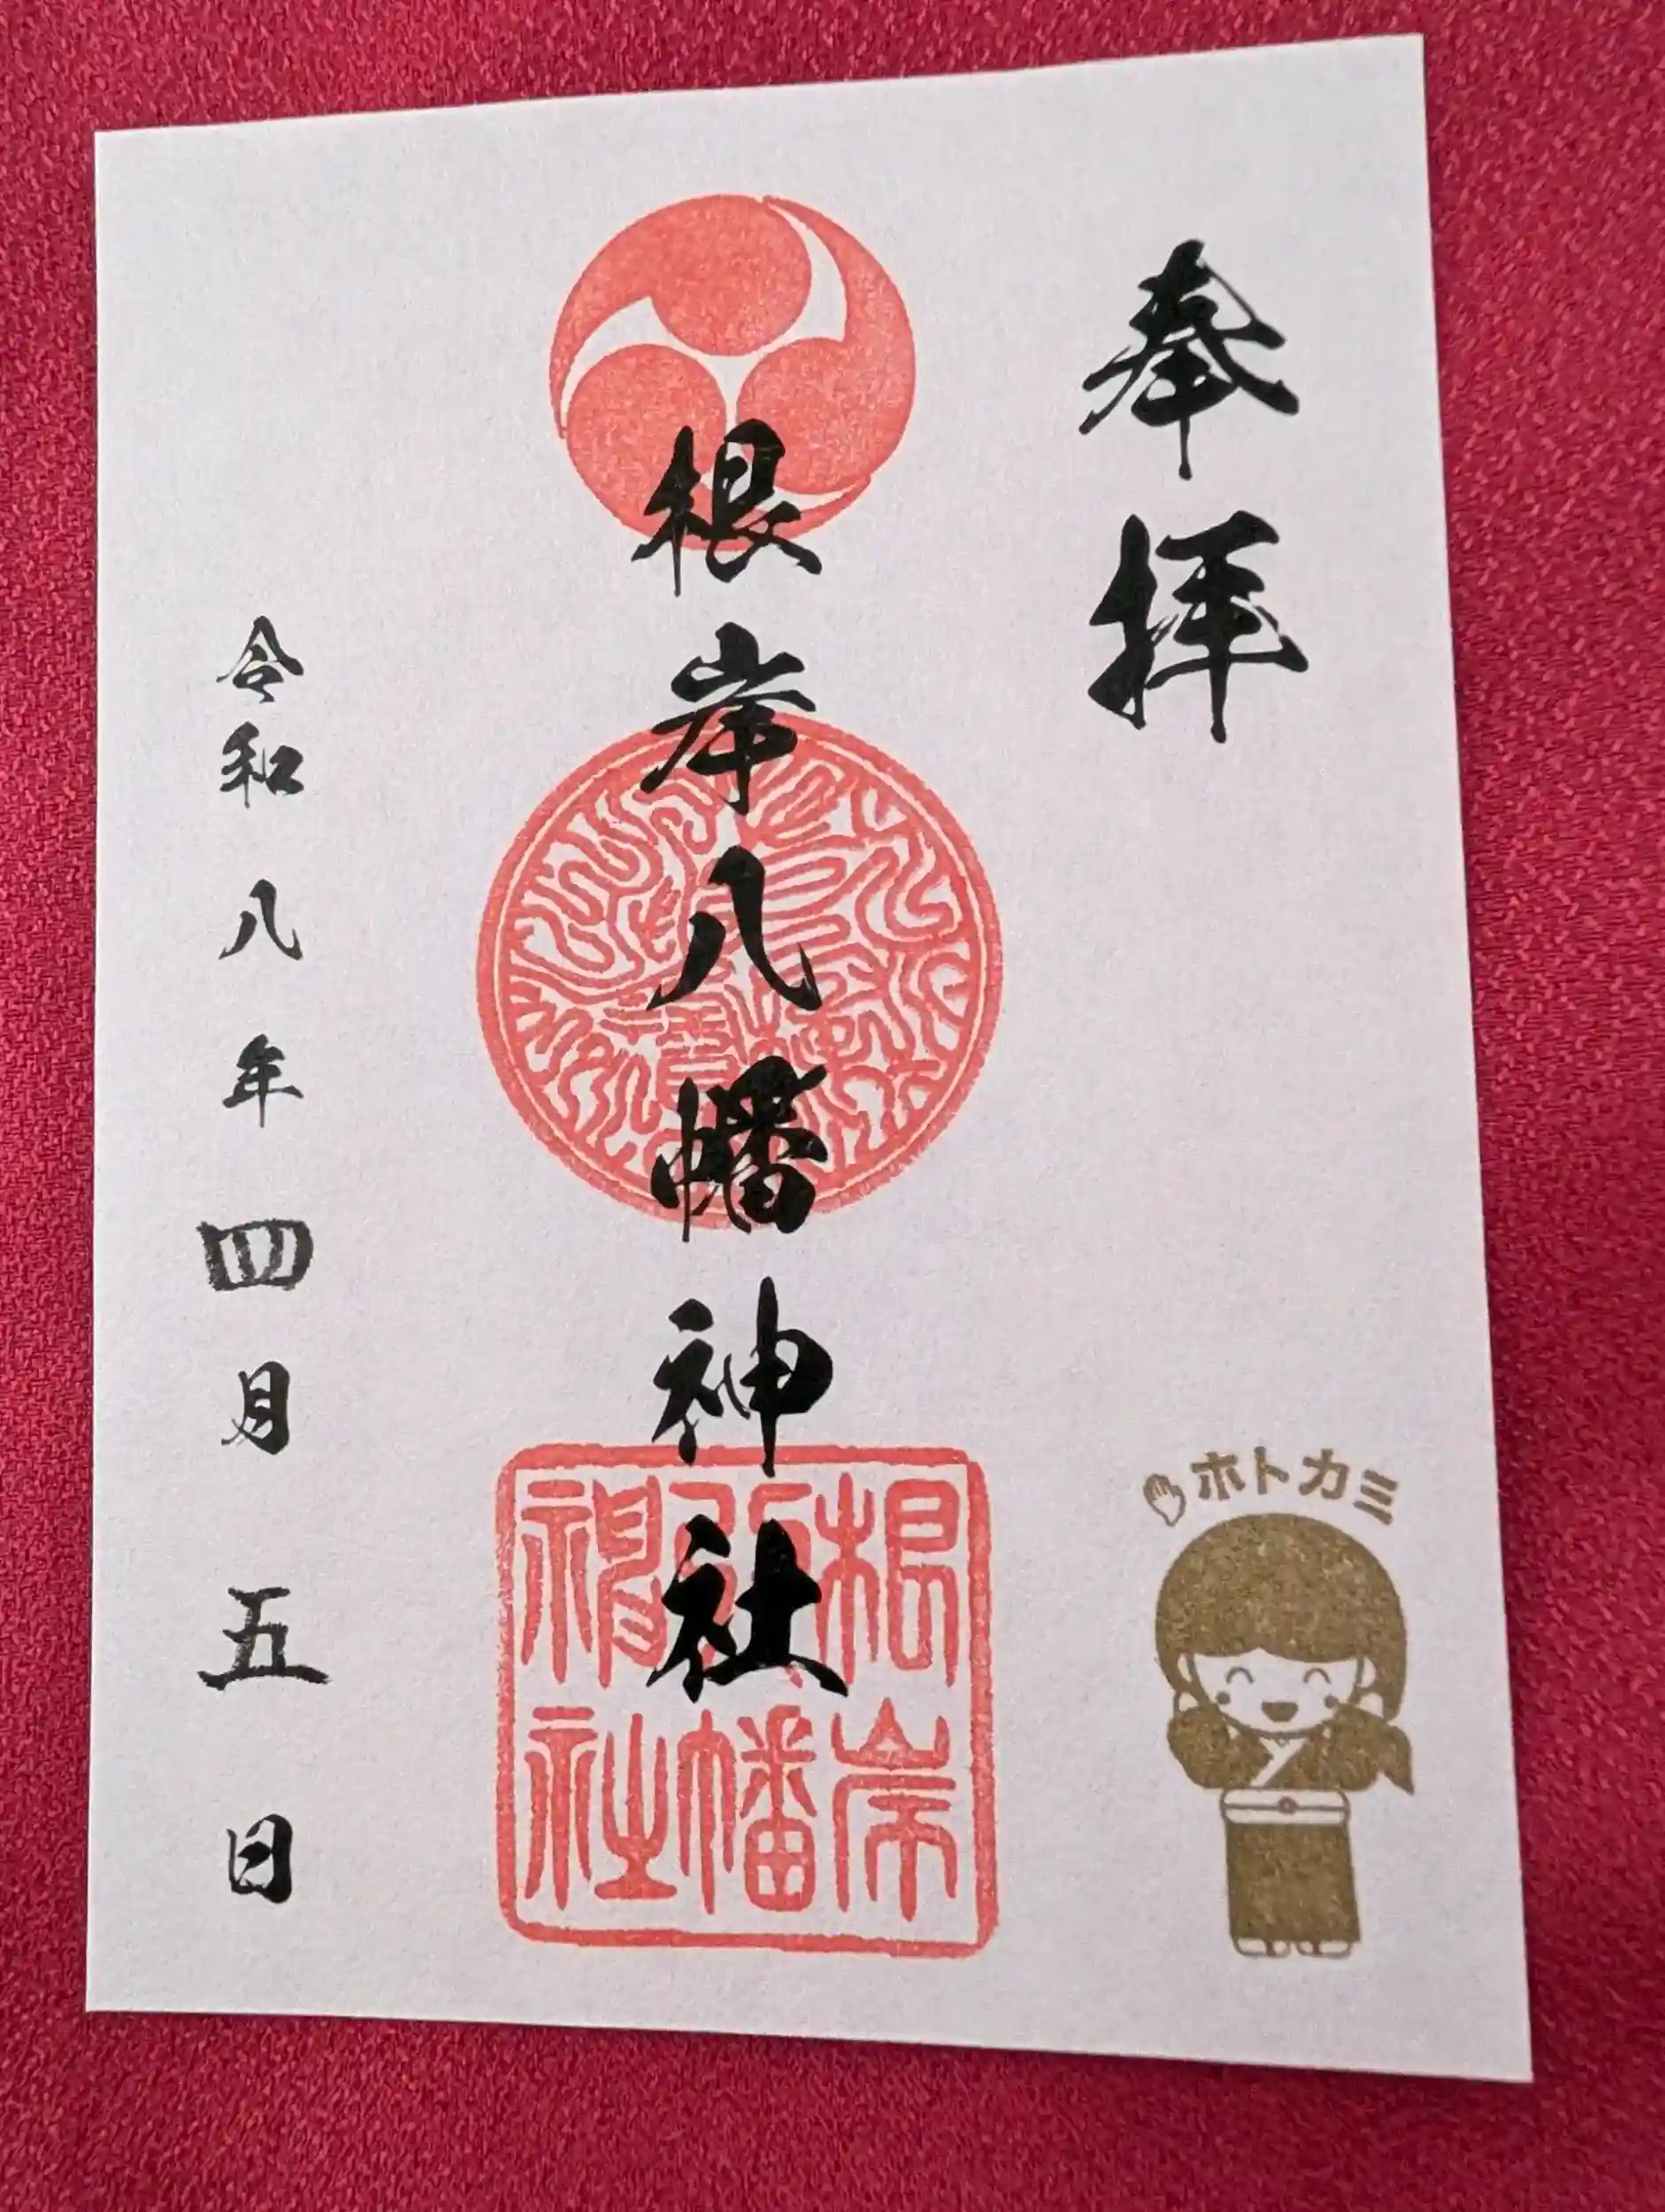 奉拝
根岸八幡神社
根岸八幡神社
令和八年四月五日
ホトカミ